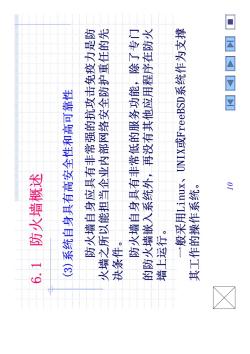 6.1 防火墙概述
(3)系统自身具有高安全性和高可靠性
防火墙自身应具有非常强的抗攻击免疫力是防
火墙之所以能担当企业内部网络安全防护重任的先
决条件。
防火墙自身具有非常低的服务功能，除了专门
的防火墙嵌入系统外，再没有其他应用程序在防火
墙上运行。
一般采用Linux、UNIX或FreeBSD系统作为支撑
其工作的操作系统。
10